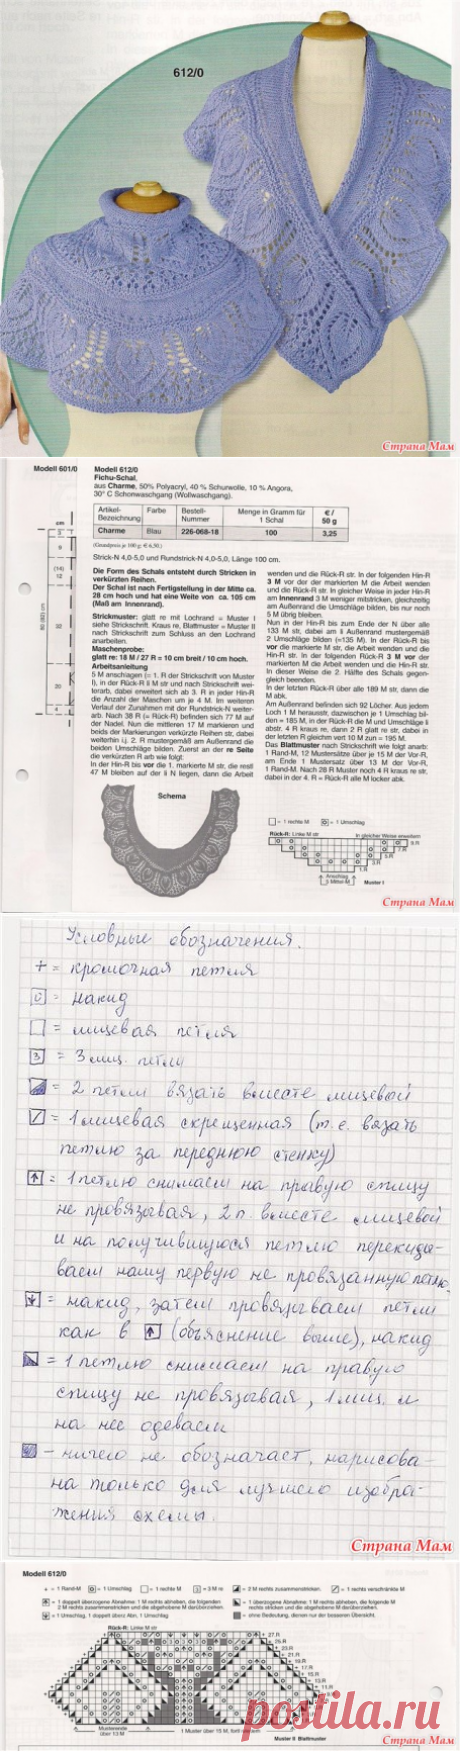 612/0
Страна Мам
Modell 601/0
Modell 612/0
Fichu-Schal,
aus Charme, 50% Polyacryl, 40 % Schurwolle, 10 % Angora,
30° C Schonwaschgang (Wollwaschgang).
Artikel-Bezeichnung Farbe Bestell-Nummer Menge in Gramm für 1 Schal € / 50 g
Charme Blau 226-068-18 100 3,25
(Grundpreis je 100 g: € 6,50.)
Strick-N 4,0-5,0 und Rundstrick-N 4,0-5,0, Länge 100 cm.
Die Form des Schals entsteht durch Stricken in
verkürzten Reihen.
Der Schal ist nach Fertigstellung in der Mitte ca.
28 cm hoch und hat eine Weite von ca. 105 cm
(Maß am Innenrand).
Strickmuster: glatt re mit Lochrand = Muster I
siehe Strickschrift. Kraus re, Blattmuster = Muster II
nach Strickschrift zum Schluss an den Lochrand
anarbeiten.
Maschenprobe:
glatt re: 18 M / 27 R = 10 cm breit / 10 cm hoch.
Arbeitsanleitung
5 M anschlagen (= 1. R der Strickschrift von Muster
I), in der Rück-R li M str und nach Strickschrift wei-
terarb, dabei erweitert sich ab 3. R in jeder Hin-R
die Anzahl der Maschen um je 4 M. Im weiteren
Verlauf der Zunahmen mit der Rundstrick-N weiter-
arb. Nach 38 R (= Rück-R) befinden sich 77 M auf
der Nadel. Nun die mittleren 17 M markieren und
beids der Markierungen verkürzte Reihen str, dabei
weiterhin i.j. 2. R mustergemäß am Außenrand die
beiden Umschläge bilden. Zuerst an der re Seite
die verkürzten R arb wie folgt:
In der Hin-R bis vor die 1. markierte M str, die restl
47 M bleiben auf der li N liegen, dann die Arbeit
wenden und die Rück-R str. In der folgenden Hin-R
3 M vor der der markierten M die Arbeit wenden
und die Rück-R str. In gleicher Weise in jeder Hin-R
am Innenrand 3 M weniger mitstricken, gleichzeitig
am Außenrand die Umschläge bilden, bis nur noch
5 M übrig bleiben.
Nun in der Hin-R bis zum Ende der N über alle
133 M str, dabei am li Außenrand mustergemäß
2 Umschläge bilden (=135 M). In der Rück-R bis
vor die markierte M str, die Arbeit wenden und die
Hin-R str. In der folgenden Rück-R 3 M vor der
markierten M die Arbeit wenden und die Hin-R str.
In dieser Weise die 2. Hälfte des Schals gegen-
gleich beenden.
In der letzten Rück-R über alle 189 M str, dann die
M abk.
Am Außenrand befinden sich 92 Löcher. Aus jedem
Loch 1 M herausstr, dazwischen je 1 Umschlag bil-
den = 185 M, in der Rück-R die M und Umschläge li
abstr. 4 R kraus re, dann 2 R glatt re str, dabei in
der letzten R gleichm vert 10 M zun = 195 M.
Das Blattmuster nach Strickschrift wie folgt anarb:
1 Rand-M, 12 Mustersätze über je 15 M der Vor-R,
am Ende 1 Mustersatz über 13 M der Vor-R,
1 Rand-M. Nach 28 R Muster noch 4 R kraus re str,
dabei in der 4. R = Rück-R alle M locker abk.
Schema
= 1 rechte M = 1 Umschlag
Rück-R: Linke M str In gleicher Weise erweitern
Anschlag
5 Mittel-M
Muster I
Страна Мам
Условные обозначения.
+ = кромочная петля
= накид
= лицевая петля
3 = 3 лиц. петли
= 2 петли вязать вместе лицевой
= 1 лицевая скрещенная (т.е. вязать
петлю за переднюю стенку)
= 1 петлю снимаем на правую спицу
не провязывая, 2 п. вместе лицевой
и на получившуюся петлю перекиды-
ваем нашу первую не провязанную петлю.
= накид, затем провязываем петли
как в (объяснение выше), накид
= 1 петлю снимаем на правую
спицу не провязывая, 1 лиц. и
на нее одеваем
- ничего не обозначает, нарисова-
на только для лучшего изобра-
жения схемы.
Страна Мам
Modell 612/0
+ = 1 Rand-M = 1 Umschlag = 1 rechte M 3 = 3 M re = 2 M rechts zusammenstricken. = 1 rechts verschränkte M
Rück-R: Linke M str
Musterende über 13 M
1 Muster über 15 M, fortl
Muster II Blattmuster
postila.ru
Страна Мам